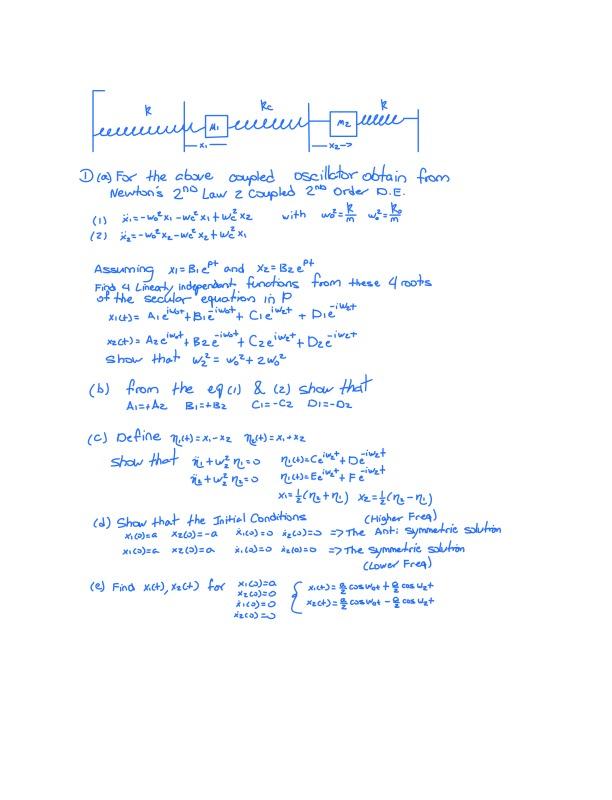 k kc k
M1 M2
x1 x2→
1) (a) For the above coupled oscillator obtain from
Newton's 2nd Law 2 Coupled 2nd Order D.E.
(1) ẍ1=-w0²x1-wc²x1+wc²x2 with w0²=k/m wc²=kc/m
(2) ẍ2=-w0²x2-wc²x2+wc²x1
Assuming x1=B1e^pt and x2=B2e^pt
Find 4 Linearly independent functions from these 4 roots
of the secular equation in P
x1(t)= A1e^iw0t+B1e^-iw0t+C1e^iw2t+D1e^-iw2t
x2(t)=A2e^iw0t+B2e^-iw0t+C2e^iw2t+D2e^-iw2t
show that w2²=w0²+2w0²
(b) from the eq (1) & (2) show that
A1=+A2 B1=+B2 C1=-C2 D1=-D2
(c) Define η1(t)=x1-x2 η2(t)=x1+x2
show that η̈1+w2²η1=0 η1(t)=Ce^iw2t+De^-iw2t
η̈2+w2²η2=0 η1(t)=Ee^iw2t+Fe^-iw2t
x1=½(η2+η1) x2=½(η2-η1)
(d) Show that the Initial Conditions (Higher Freq)
x1(0)=a x2(0)=-a ẋ1(0)=0 ẋ2(0)=0 =>The Anti Symmetric solution
x1(0)=a x2(0)=a ẋ1(0)=0 ẋ2(0)=0 =>The Symmetric solution
(Lower Freq)
(e) Find x1(t),x2(t) for x1(0)=a { x1(t)=a/2 cosw0t+a/2 cosw2t
x2(0)=0 x2(t)=a/2 cosw0t-a/2 cosw2t
ẋ1(0)=0
ẋ2(0)=0